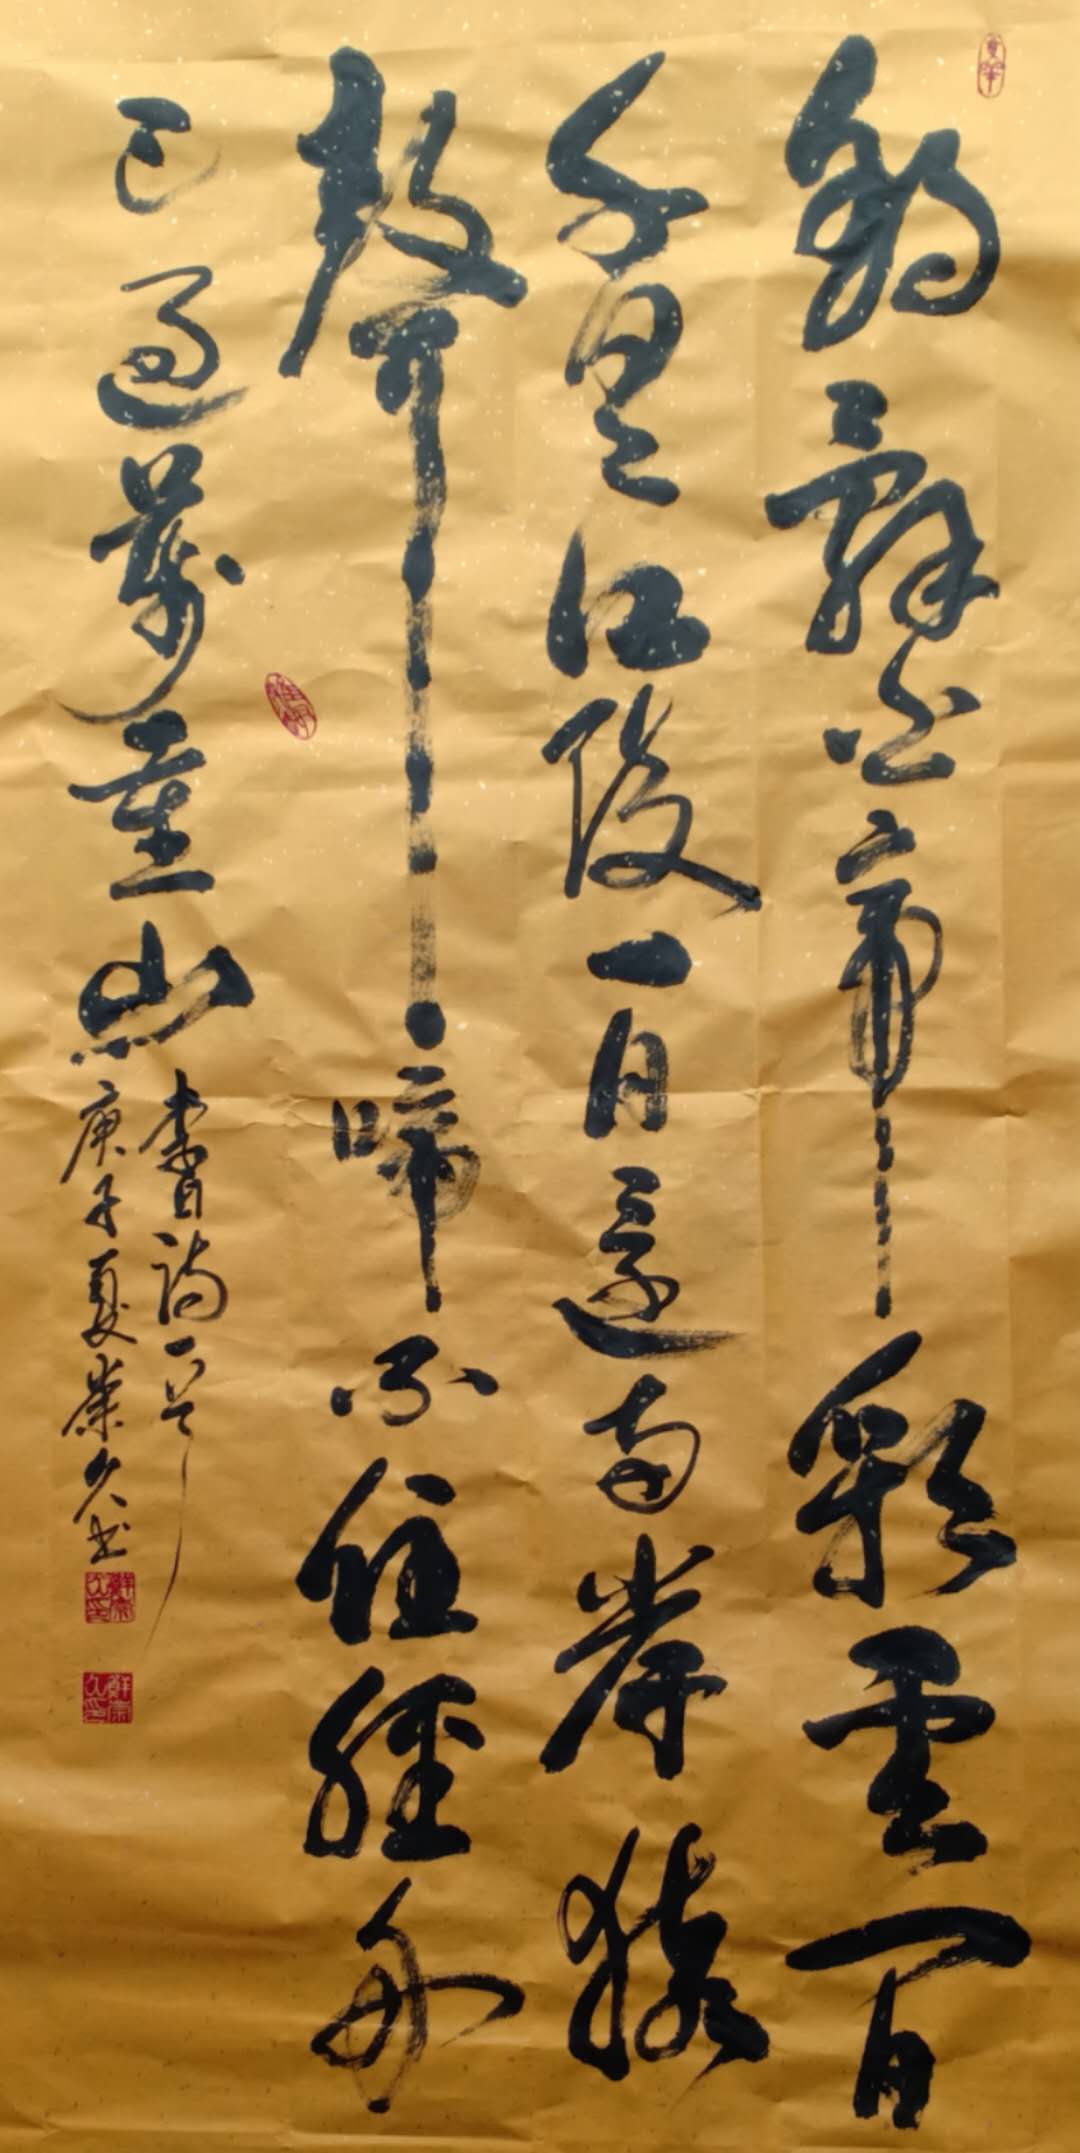 朝辭白帝彩雲間
千里江陵一日還兩岸猿
聲啼不住輕舟
已過萬重山
李白詩一首
庚子夏久書